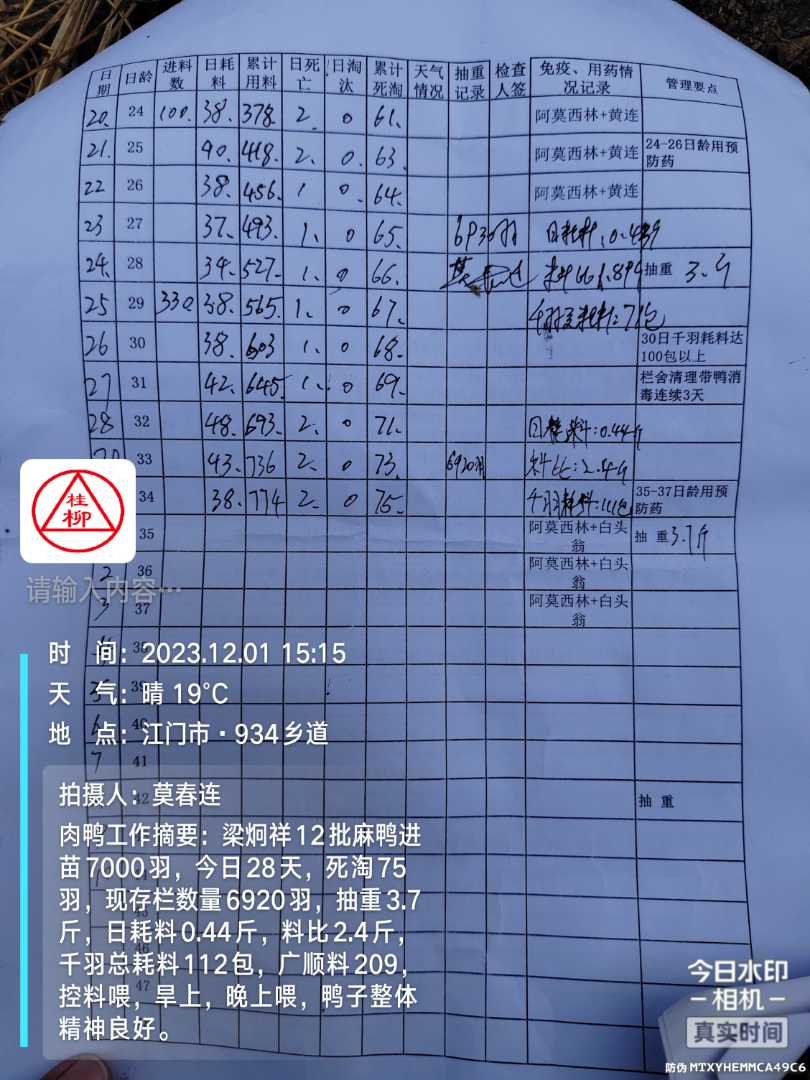 日期 日龄 进料数 日耗料 累计用料 日死亡 日淘汰 累计死淘 天气情况 抽重记录 检查人签 免疫、用药情况记录 管理要点
20. 24 100. 38. 378. 2. 0 61. 阿莫西林+黄连
21. 25 40. 418. 2. 0. 63. 阿莫西林+黄连 24-26日龄用预防药
22 26 38. 456. 1 0. 64. 阿莫西林+黄连
23 27 37. 493. 1. 0 65. 6930羽 日耗料.
24. 28 34. 527. 1. 0 66. 料比1.89斤 抽重 3.斤
25 29 330 38. 565. 1. 0 67.
26 30 38. 603 1. 0 68. 30日千羽耗料达100包以上
27 31 42. 645. 1. 0 69. 栏舍清理带鸭消毒连续3天
28 32 48. 693. 2. 0 71. 日耗料:0.44斤
33 43. 736 2. 0 73. 6920羽 料比:2.4斤
34 38. 774 2. 0 75. 千羽耗料: 35-37日龄用预防药
35 阿莫西林+白头翁 抽 重 3.7斤
2 36 阿莫西林+白头翁
3 37 阿莫西林+白头翁
38
39
6 40
7 41
42 抽 重
47
桂柳
请输入内容…
时 间：2023.12.01 15:15
天 气：晴 19℃
地 点：江门市·934乡道
拍摄人：莫春连
肉鸭工作摘要：梁炯祥12批麻鸭进
苗7000羽，今日28天，死淘75
羽，现存栏数量6920羽，抽重3.7
斤，日耗料0.44斤，料比2.4斤，
千羽总耗料112包，广顺料209，
控料喂，旱上，晚上喂，鸭子整体
精神良好。
今日水印
相机
真实时间
防伪 MTXYHEMMCA49C6